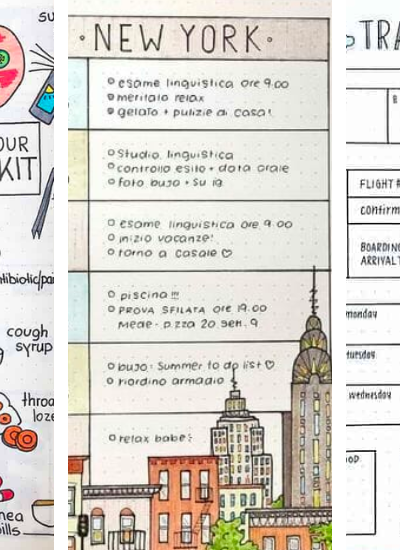 OUR
KIT
cough
syrup
·NEW YORK·
esame linguistica ore 9.00
meritato relax
gelato + pulizie di casa!
studio linguistica
controllo esito + data orale
foto bujo + su ig
esame linguistica ore 9.00
inizio vacanze!
torno a casale ♡
piscina !!!
PROVA SFILATA ore 19.00
Mede - p.zza 20 sen. 9
bujo: Summer to do list ♡
riordino armadio
relax babe!
FLIGHT #
confirm
BOARDING
ARRIVAL T
monday
tuesday
wednesday